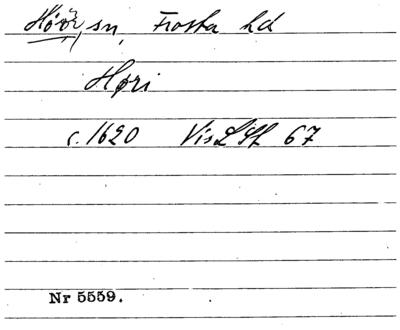 Höör, sn, Frosta hd
Høri
c. 1620 VisLSt 67
Nr 5559.